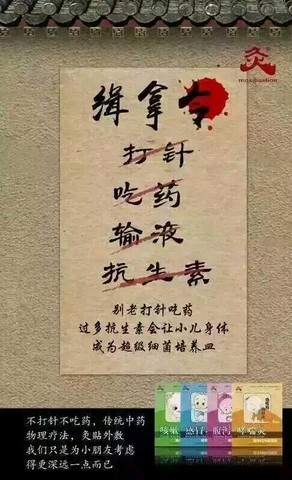 灸
moxibustion
缉拿令
打针
吃药
输液
抗生素
别老打针吃药
过多抗生素会让小儿身体
成为超级细菌培养皿
不打针不吃药,传统中药
物理疗法,灸贴外敷
我们只是为小朋友考虑
得更深远一点而已
咳嗽 感冒 腹泻 哮喘灸